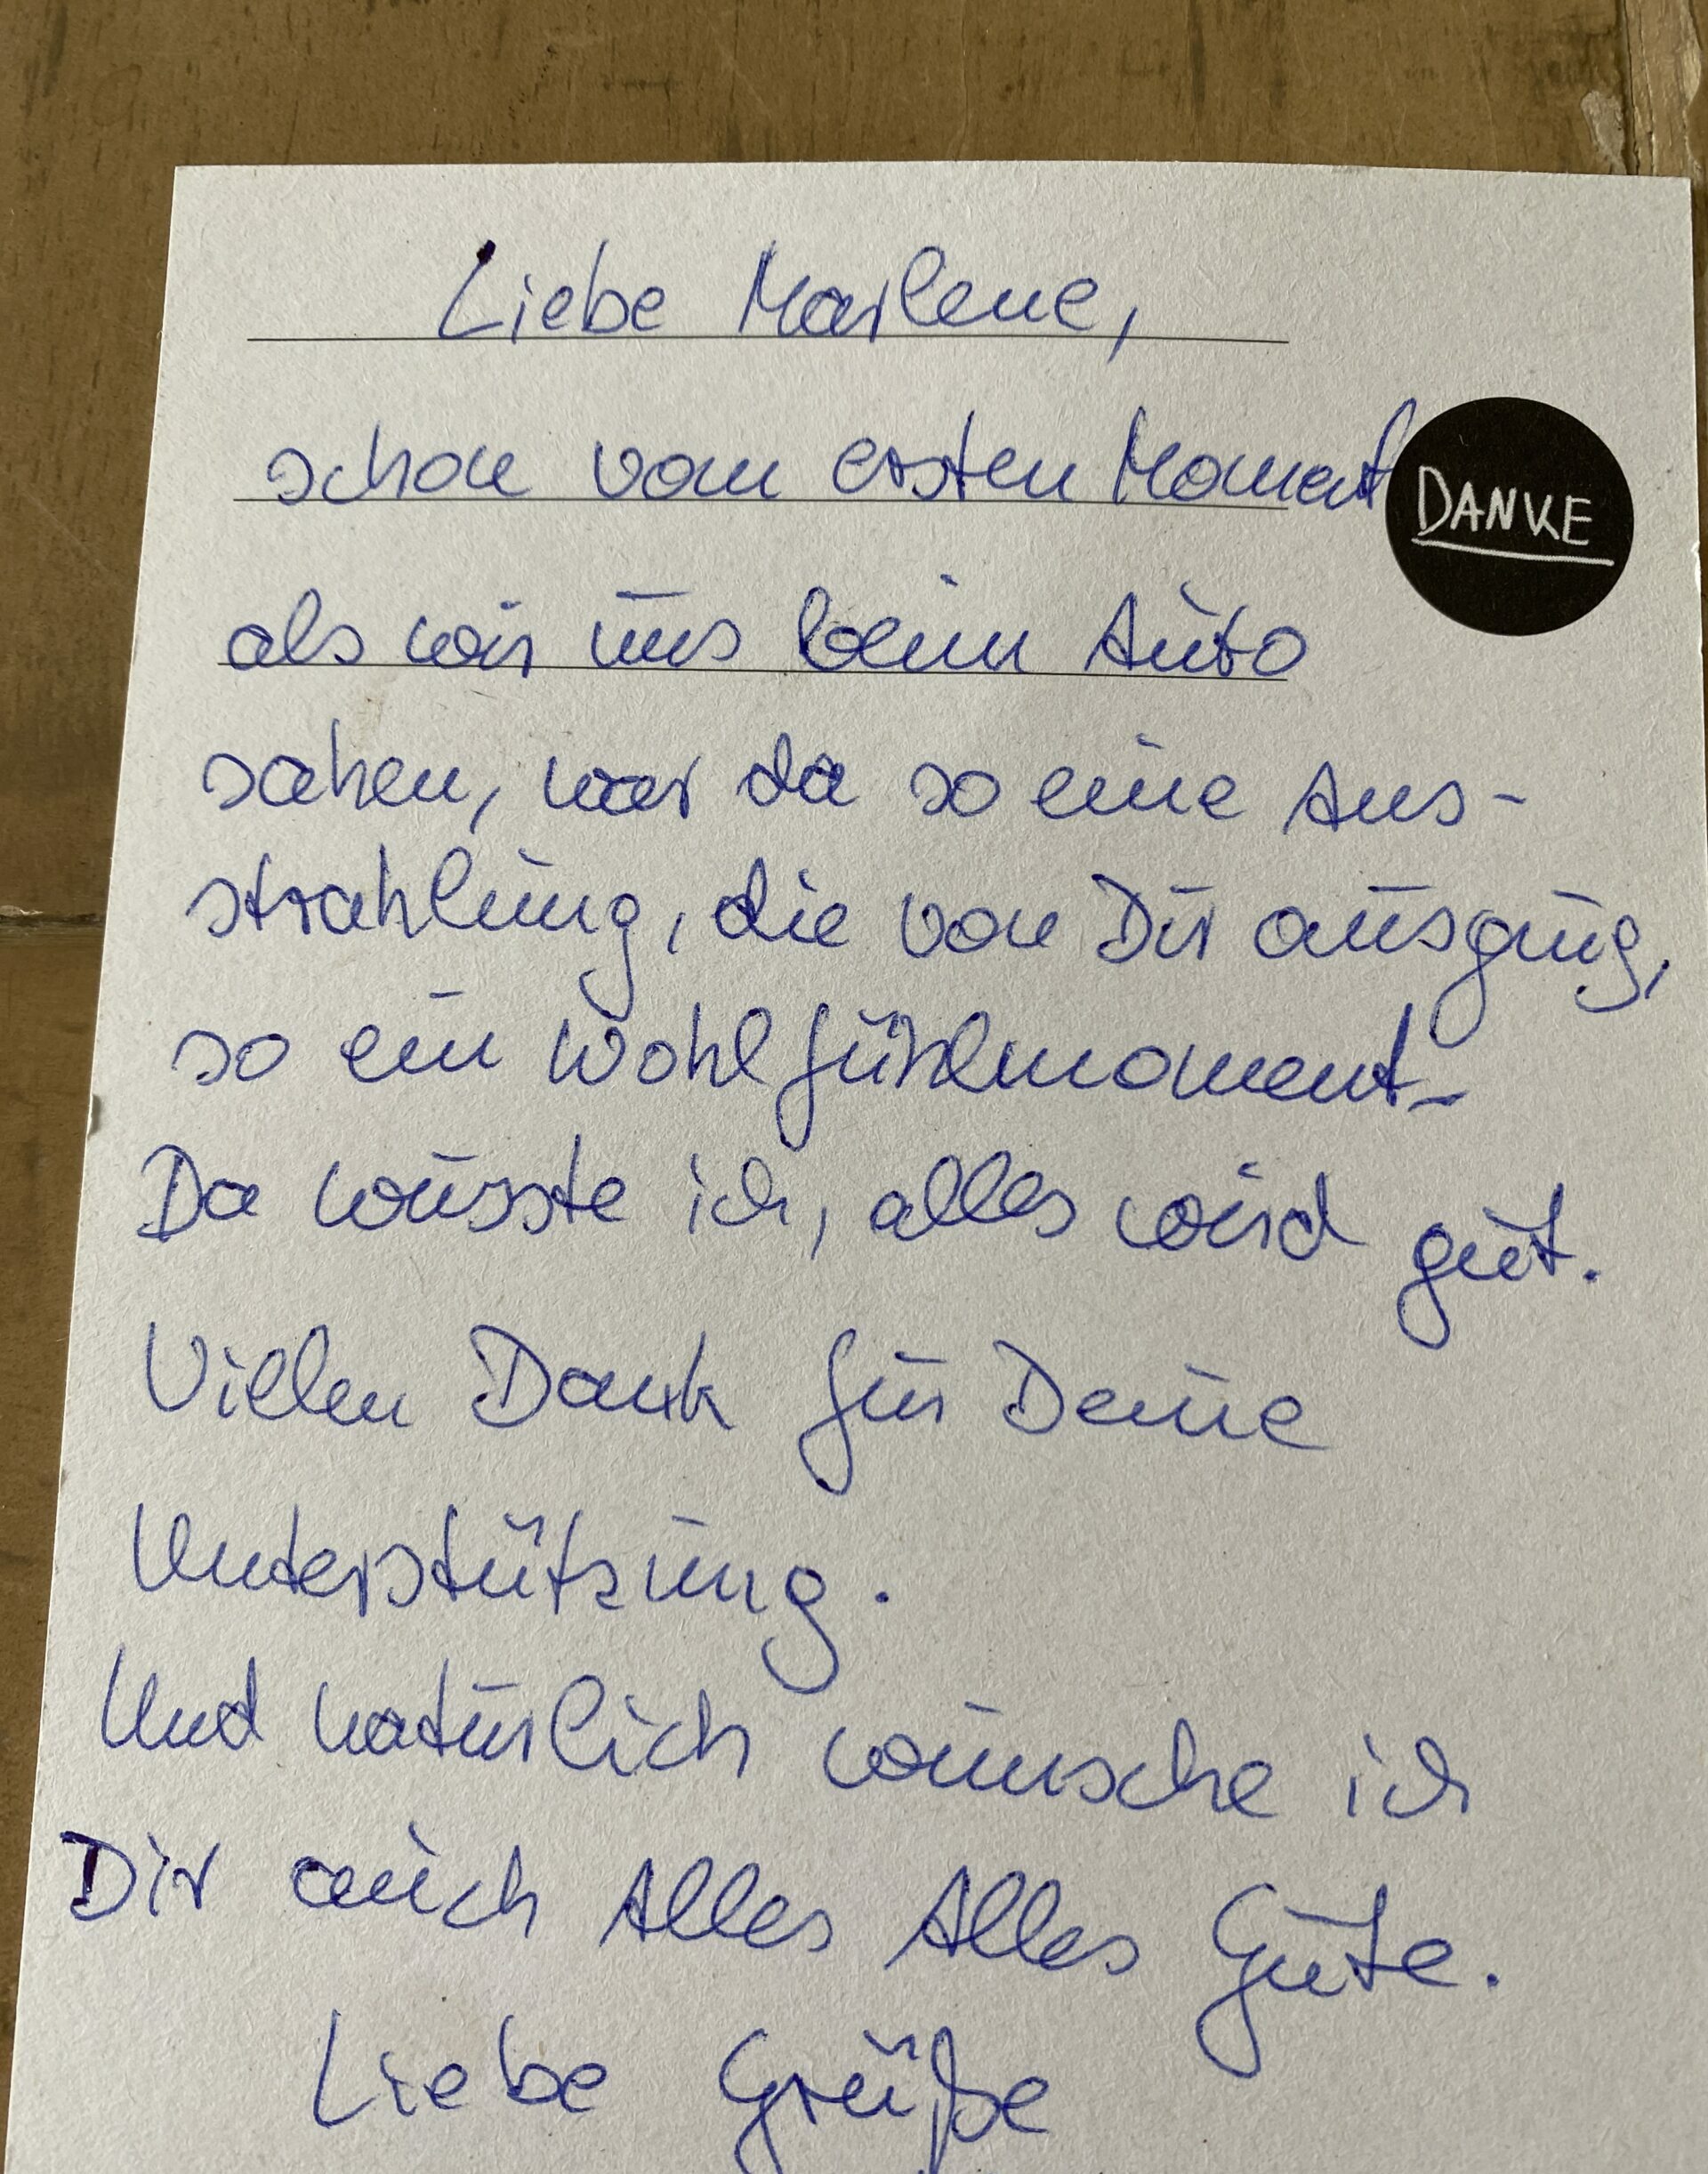 Liebe Marlene,
schon vom ersten Moment
DANKE
als wir uns beim Auto
sahen, war da so eine Aus-
strahlung, die von Dir ausging,
so ein Wohlfühlmoment-
Da wusste ich, alles wird gut.
Vielen Dank für Deine
Unterstützung.
Und natürlich wünsche ich
Dir auch Alles Alles Gute.
Liebe Grüße